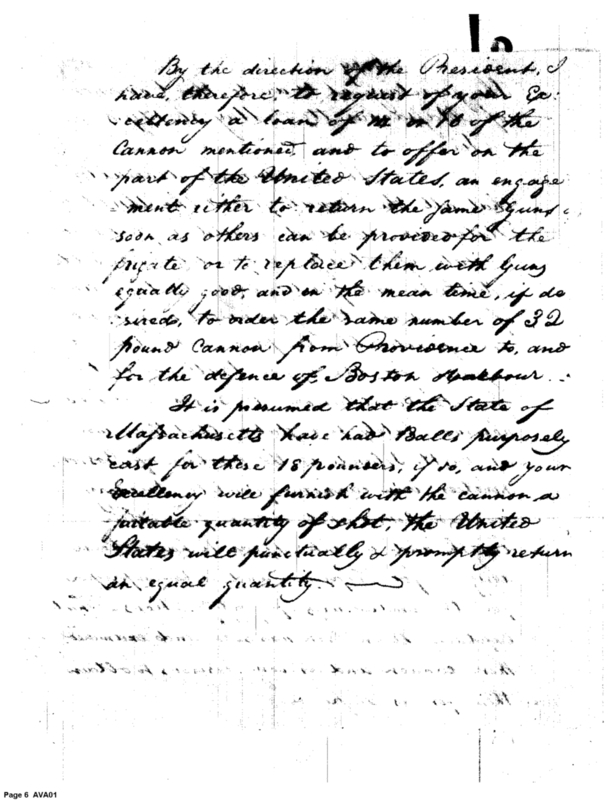 By the direction of the President, I
have, therefore, to request of your Ex-
cellency a loan of 14 or 16 of the
Cannon mentioned, and to offer on the
part of the United States, an engage
ment either to return the same Guns
soon as others can be provided for the
frigate or to replace them with Guns
equally good, and in the mean time, if de
sired, to order the same number of 32
pound Cannon from Providence to, and
for the defence of, Boston Harbour.
It is presumed that the State of
Massachusetts have had Balls purposely
cast for these 18 pounders, if so, and your
Excellency will furnish with the cannon a
suitable quantity of shot, the United
States will punctually & promptly return
an equal quantity.
Page 6 AVA01